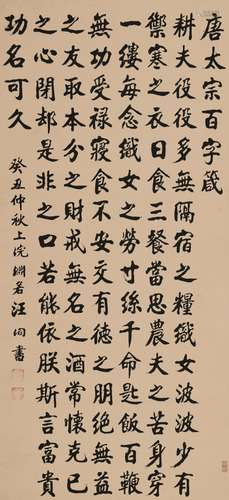 唐太宗百字箴
耕夫役役多無隔宿之糧織女波波少有
禦寒之衣日食三餐當思農夫之苦身穿
一縷每念織女之勞寸絲千命匙飯百鞭
無功受祿寢食不安交有德之朋絕無益
之友取本分之財戒無名之酒常懷克己
之心閉却是非之口若能依朕斯言富貴
功名可久
癸丑仲秋上浣淵若汪洵書